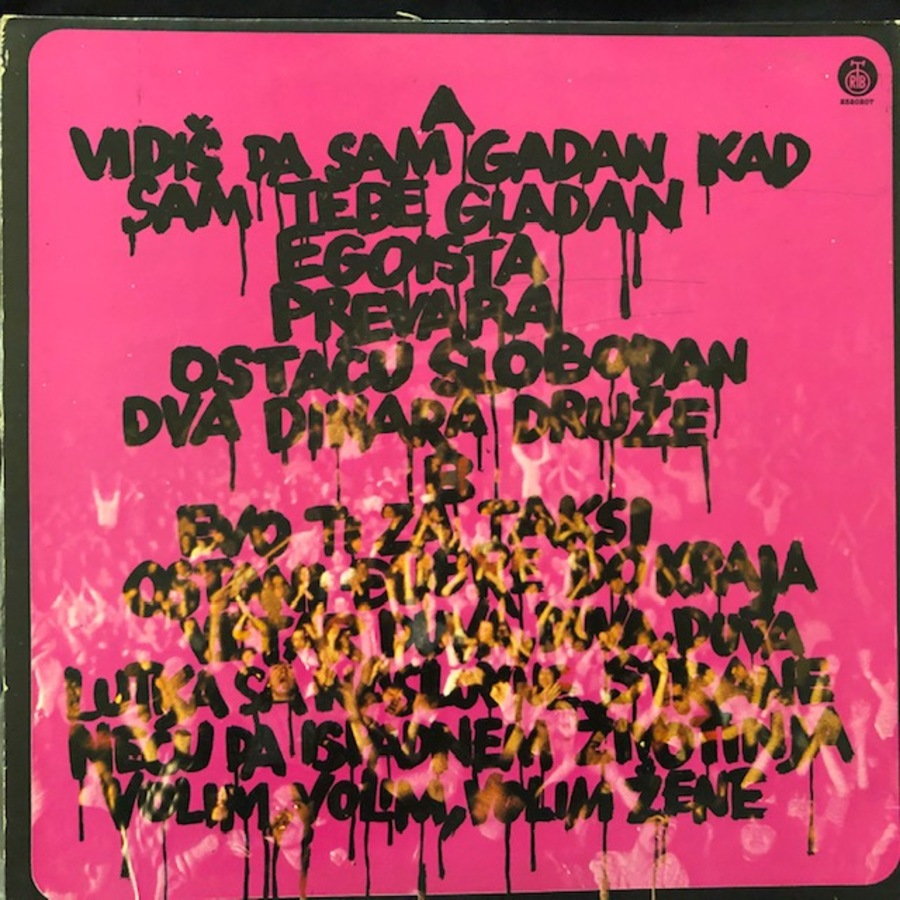 RTB
A
VIDIŠ DA SAM GADAN KAD
SAM TEBE GLADAN
EGOISTA
PREVARA
OSTAĆU SLOBODAN
DVA DINARA DRUŽE
B
EVO TI ZA TAKSI
OSTANI ĐUBRE DO KRAJA
VETAR DUVA, DUVA, DUVA
LUTKA SA NASLOVNE STRANE
NEĆU DA ISPADNEM ŽIVOTINJA
VOLIM, VOLIM, VOLIM ŽENE